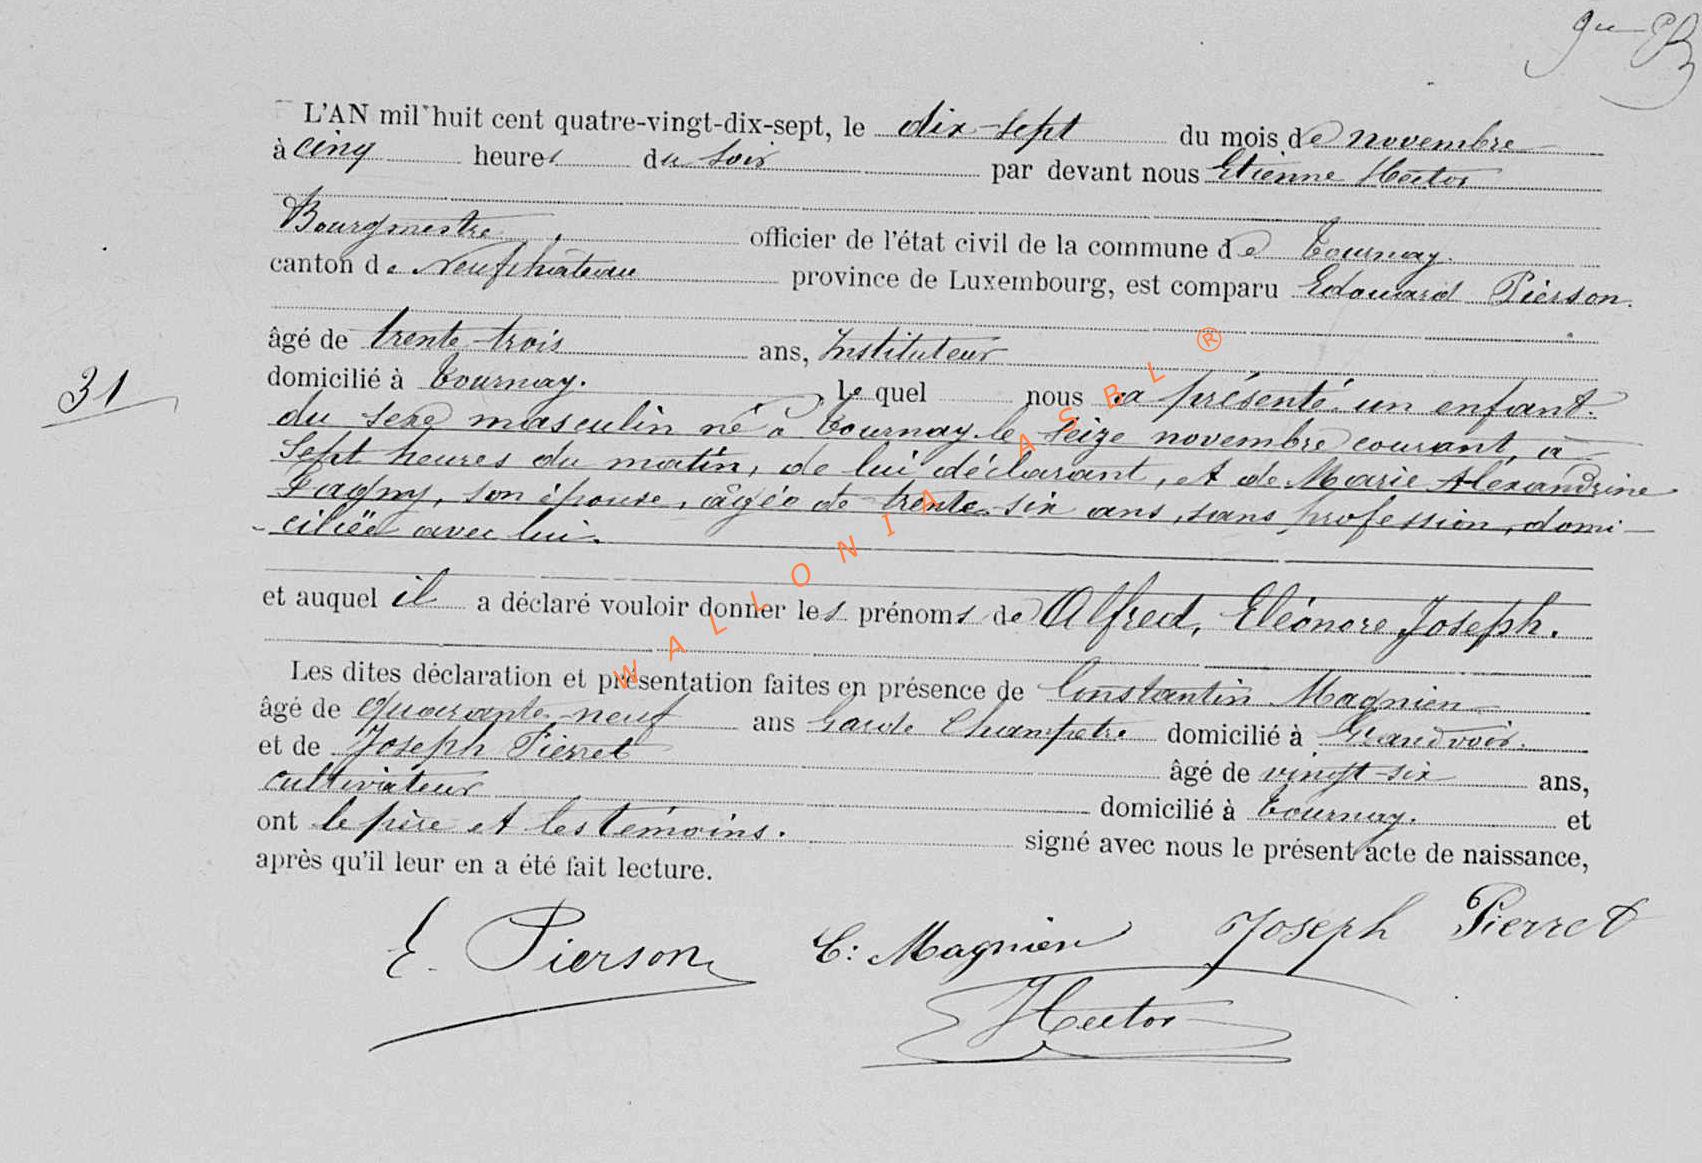 L'AN mil huit cent quatre-vingt-dix-sept, le dix-sept du mois de novembre
à cinq heures du soir par devant nous Etienne Hector
Bourgmestre, officier de l'état civil de la commune de Tournay.
canton de Neufchâteau province de Luxembourg, est comparu Edouard Pierson.
âgé de trente-trois ans, Instituteur
domicilié à Tournay. Le quel nous a présenté un enfant.
31
du sexe masculin né à Tournay le seize novembre courant, à
sept heures du matin, de lui déclarant, et de Marie Alexandrine
Fagny, son épouse, âgée de trente-six ans, sans profession, domi-
-ciliée avec lui.
et auquel il a déclaré vouloir donner les prénoms de Alfred, Eléonore Joseph.
Les dites déclaration et présentation faites en présence de Constantin Magnien
âgé de quarante-neuf ans Garde Champetre domicilié à Grandvoir.
et de Joseph Pierret âgé de vingt-six ans,
cultivateur domicilié à Tournay. et
ont le père et les témoins. signé avec nous le présent acte de naissance,
après qu'il leur en a été fait lecture.
E. Pierson C: Magnien Joseph Pierret
Hector
WALLONIA ASBL ®